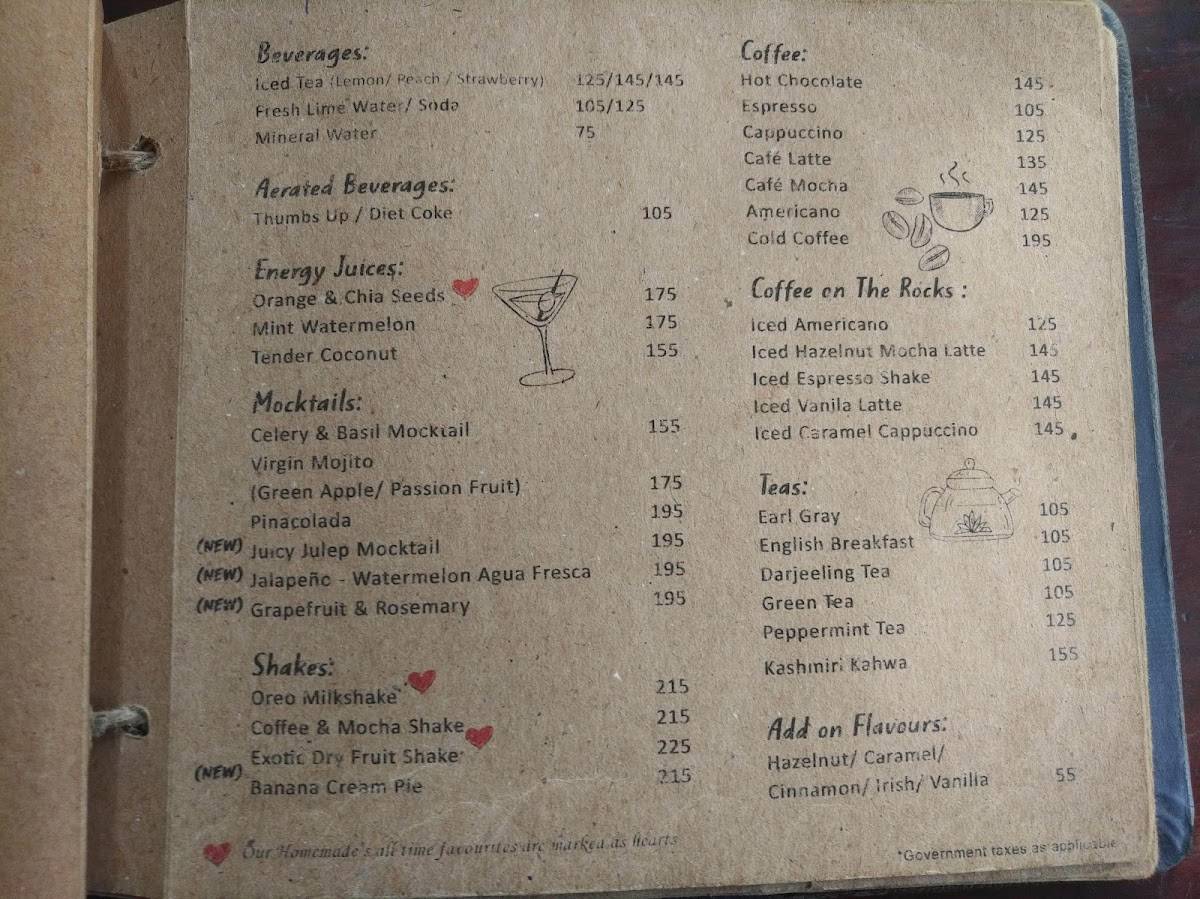 Beverages:
Iced Tea (Lemon/ Peach / Strawberry) 125/145/145
Fresh Lime Water/ Soda 105/125
Mineral Water 75
Aerated Beverages:
Thumbs Up / Diet Coke 105
Energy Juices:
Orange & Chia Seeds 175
Mint Watermelon 175
Tender Coconut 155
Mocktails:
Celery & Basil Mocktail 155
Virgin Mojito
(Green Apple/ Passion Fruit) 175
Pinacolada 195
(NEW) Juicy Julep Mocktail 195
(NEW) Jalapeño - Watermelon Agua Fresca 195
(NEW) Grapefruit & Rosemary 195
Shakes:
Oreo Milkshake 215
Coffee & Mocha Shake 215
Exotic Dry Fruit Shake 225
(NEW) Banana Cream Pie 215
Our Homemade's all time favourites are marked as hearts
Coffee:
Hot Chocolate 145
Espresso 105
Cappuccino 125
Café Latte 135
Café Mocha 145
Americano 125
Cold Coffee 195
Coffee on The Rocks :
Iced Americano 125
Iced Hazelnut Mocha Latte 145
Iced Espresso Shake 145
Iced Vanila Latte 145
Iced Caramel Cappuccino 145
Teas:
Earl Gray 105
English Breakfast 105
Darjeeling Tea 105
Green Tea 105
Peppermint Tea 125
Kashmiri Kahwa 155
Add on Flavours:
Hazelnut/ Caramel/
Cinnamon/ Irish/ Vanilla 55
*Government taxes as applicable